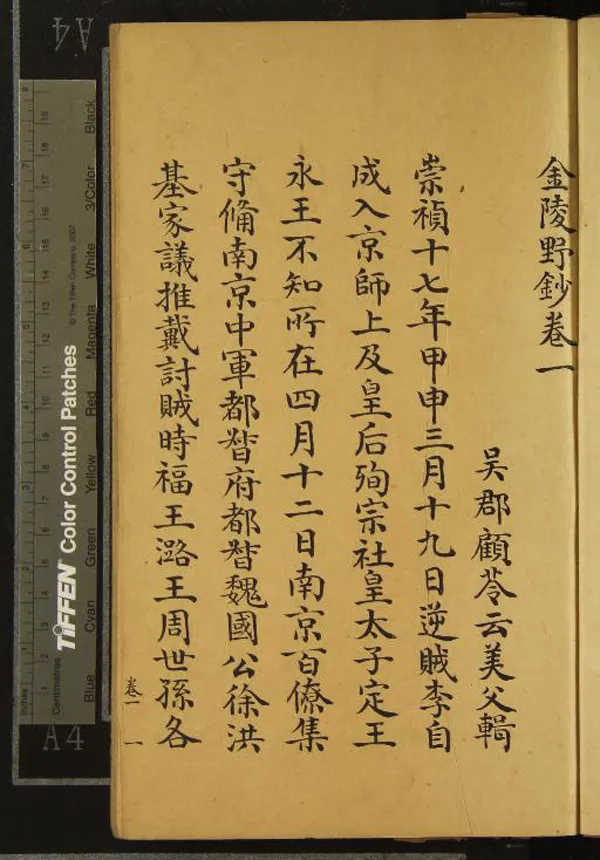 金陵野鈔卷一
吴郡顧苓云美父輯
崇禎十七年甲申三月十九日逆賊李自
成入京師上及皇后殉宗社皇太子定王
永王不知所在四月十二日南京百僚集
守備南京中軍都督府都督魏國公徐洪
基家議推戴討賊時福王潞王周世孫各
卷一 一
TIFFEN Color Control Patches
© The Tiffen Company, 2007
Inches
Centimetres
Blue Cyan Green Yellow Red Magenta White 3/Color Black
A4
A4